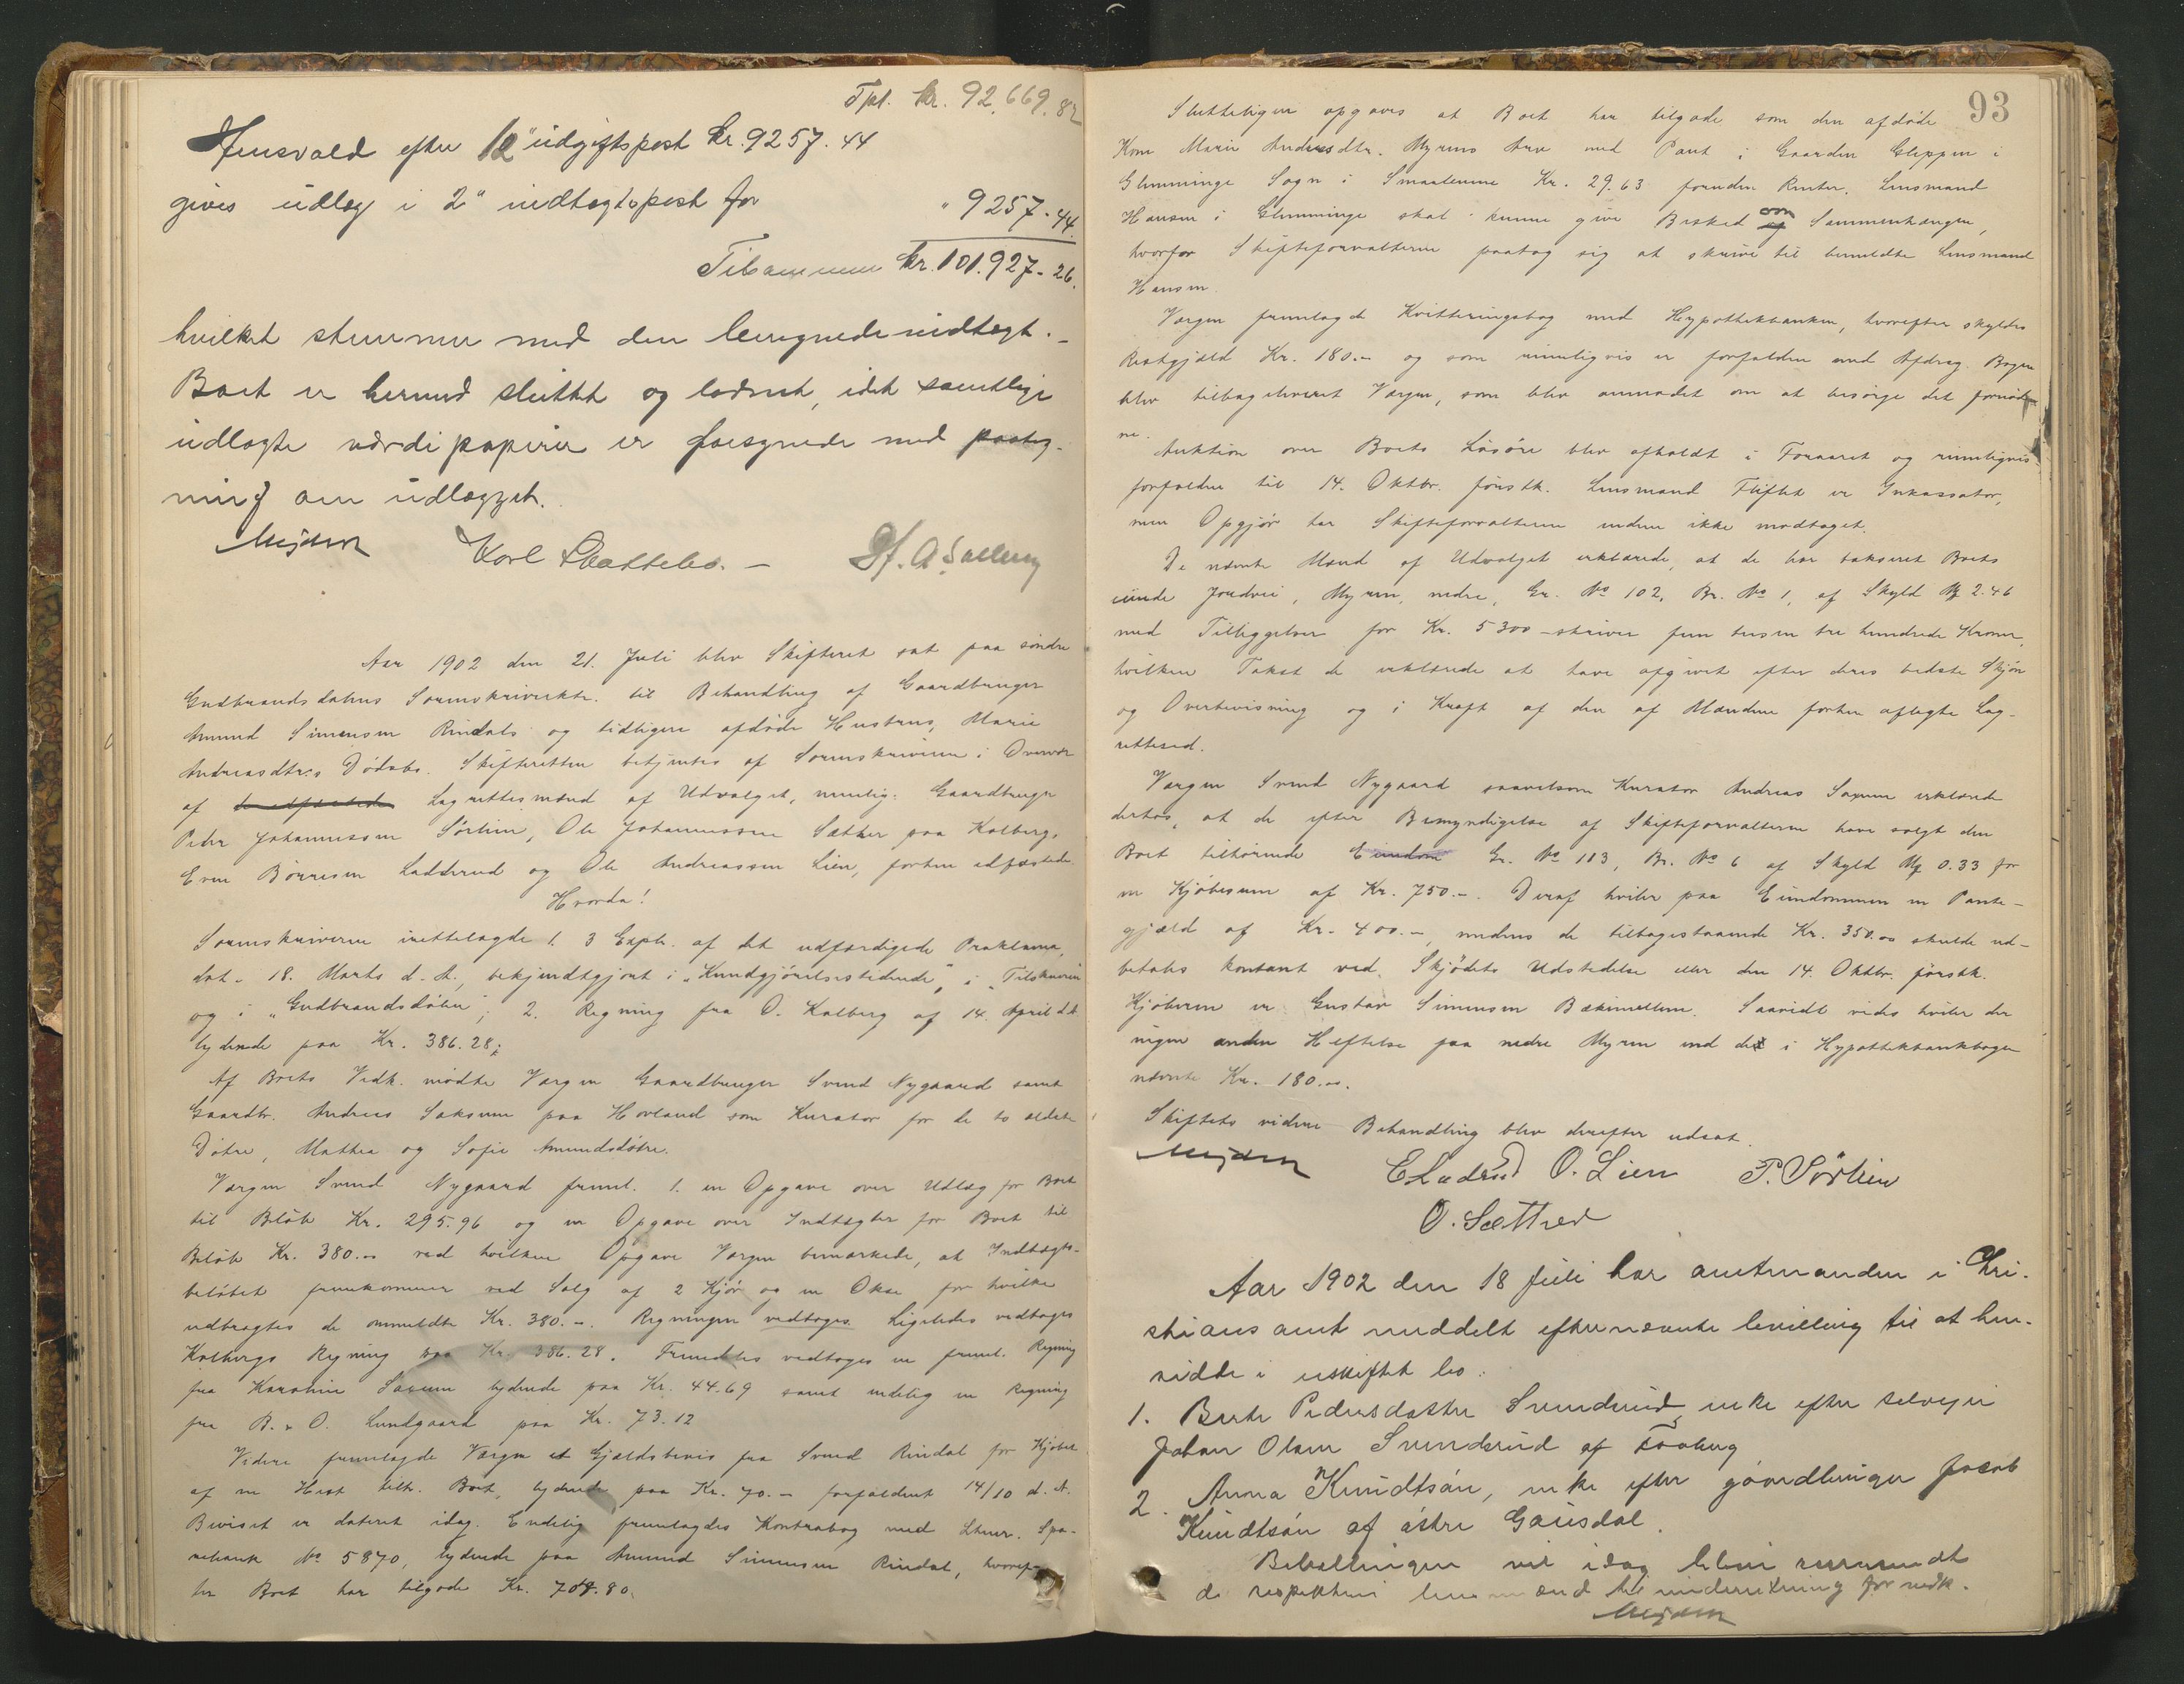 Tpt. kr. 92.669.82
Hensvald efter 12" udgiftspost kr. 9257.44
gives udlæg i 2" indtægtspost for " 9257-44.
Tilsammen kr. 101.927-26.
hvilket stemmer med den beregnede indtægt.-
Boet er hermed sluttet og lodnet, idet samtlige
udlagte værdipapirer er forsynede med paateg-
ning om udlægget.
Mejdell Karl Skattebo.-
Aar 1902 den 21. Juli blev Skifteret sat paa søndre
Gudbrandsdalens Sorenskriverktr. til Behandling af Gaardbruger
Amund Simensen Rindals og tidligere afdøde Hustrus, Marie
Andreasdtr.s Dødsbo. Skifteretten betjentes af Sorenskriveren i Overvær
af Lagrettesmænd af Udvalget, nemlig: Gaardbruger
Peder Johannessen Sørlien, Ole Johannessen Sæther paa Kolberg,
Even Børresen Ladderud og Ole Andreassen Lien, forhen edfæstede.
Hvorda!
Sorenskriveren irettelagde 1. 3 Expl. af det udfærdigede Proklama,
dat. 18. Marts d. A., bekjendtgjort i "Kundgjørelsestidende", i "Tilskueren"
og i "Gudbrandsdølen"; 2. Regning fra O. Kolberg af 14. April d.A.
lydende paa Kr. 386.28;
Af Boets Vedk. mødte Værgen Gaardbruger Svend Nygaard samt
Gaardbr. Andreas Saksum paa Hovland som Kurator for de to ældste
Døtre, Mathea og Sofie Amundsdøtre.
Værgen Svend Nygaard freml. 1. en Opgave over Udlæg for Boet
til Beløb Kr. 295.96 og en Opgave over Indtægter for Boet til
Beløb Kr. 380.00 ved hvilken Opgave Værgen bemærkede, at Indtægts-
beløbet fremkommer ved Salg af 2 Kjør og en Okse, for hvilke
udbragtes de ommeldte Kr. 380.-. Regningen vedtoges. Ligeledes vedtoges
Kolbergs Regning paa Kr. 386.28. Fremdeles vedtoges en freml. Regning
fra Karoline Saxum lydende paa Kr. 44.69 samt endelig en Regning
fra B. & O. Lundgaard paa Kr. 73.12
Videre fremlagde Værgen et Gjældsbevis fra Svend Rindal for Kjøbet
af en Hest tilh. Boet, lydende paa Kr. 70.- forfaldent 14/10 d. A.
Beviset er dateret idag. Endelig fremlagdes Kontrabog med Spa-
rebank No 5870, lydende paa Amund Simensen Rindal, hvoref-
ter Boet har tilgode Kr. 708.80.
93
Slutteligen opgaves at Boet har tilgode som den afdøde
Kone Marie Andreasdtr. Myrens Arv med Pant i Gaarden Gleppen i
Glemminge Sogn i Smaalenene Kr. 29.63 foruden Renter. Lensmand
Hansen i Glemminge skal kunne give Besked om Sammenhængen,
hvorfor Skifteforvalteren paatog sig at skrive til bemeldte Lensmand
Hansen.
Værgen fremlagde Kvitteringsbog med Hypothekbanken, hvorefter skyldes
Restgjæld Kr. 180.- og som rimeligvis er forfalden med Afdrag. Bogen
blev tilbageleveret Værgen, som blev anmodet om at besørge det fornød-
ne.
Auktion over Boets Løsøre blev afholdt i Foraaret og rimeligvis
forfalden til 14. Oktbr. førstk. Lensmand Fliflet er Inkassator,
men Opgjør har Skifteforvalteren endnu ikke modtaget.
De nævnte Mænd af Udvalget erklærede, at de har takseret Boets
eiende Jordvei, Myren, nedre, Gr. No 102, Br. No 1, af Skyld Mk 2.46
med Tilliggelser for Kr. 5300 - skriver fem tusen tre hundrede Kroner,
hvilken Takst de erklærede at have afgivet efter deres bedste Skjøn
og Overbevisning og i Kraft af den af Mændene forhen aflagte Lag-
rettesed.
Værgen Svend Nygaard saavelsom Kurator Andreas Saxum erklærede
derhos, at de efter Bemyndigelse af Skifteforvalteren have solgt den
Boet tilhørende Eiendom Gr. No 113, Br. No 6 af Skyld Mk 0.33 for
en Kjøbesum af Kr. 750.-. Deraf hviler paa Eiendommen en Pante-
gjæld af Kr. 400.-, medens de tilbagestaaende Kr. 350.00 skulde ud-
betales kontant ved Skjødets Udstedelse eller den 14. Oktbr. førstk.
Kjøberen er Gustav Simensen Bækimellem. Saavidt vides hviler der
ingen anden Heftelse paa nedre Myren end de i Hypothekbankbogen
nævnte Kr. 180.00.
Skiftets videre Behandling blev derefter udsat.
Mejdell E Ladrud O. Lien P. Sørlien
O. Sættred
Aar 1902 den 18 juli har amtmanden i Kri-
stians amt meddelt efternævnte bevilling til at hen-
sidde i uskiftet bo:
1. Berte Pedersdatter Svendsrud, enke efter selveier
Johan Olsen Svendsrud af Faaberg
2. Anna Knudtsøn, enke efter gaardbruger Jacob
Knudtsøn af østre Gausdal.
Bevillingen vil idag blive remmendt
de respektive lensmænd til underretning for vedk.
Mejdell